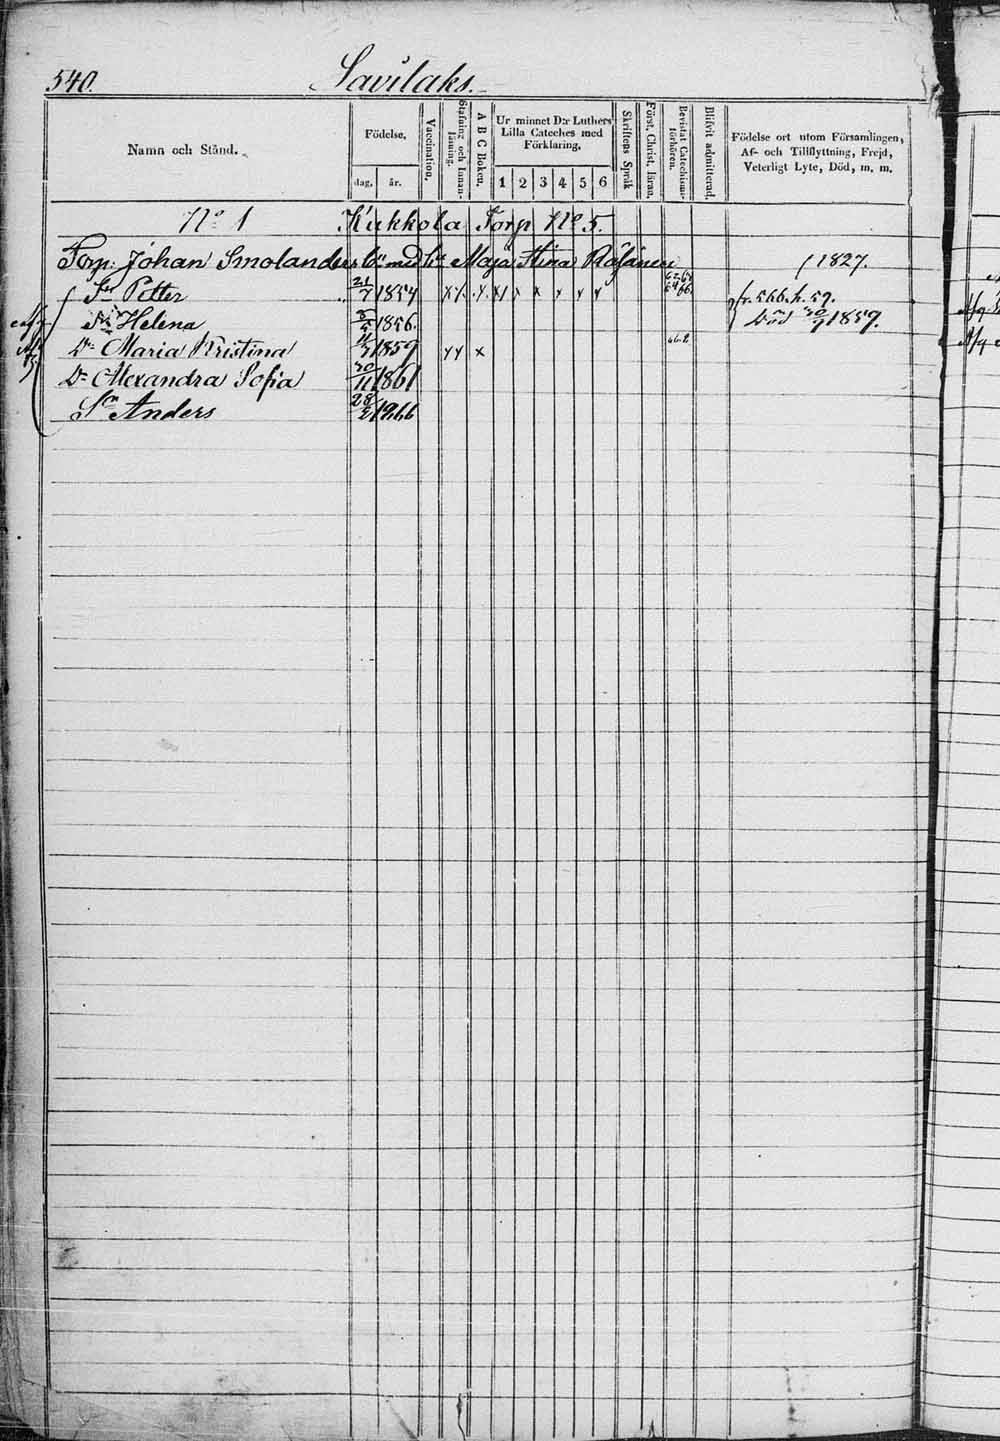 540. Savilaks.
Namn och Stånd.
Födelse.
dag. år.
Vaccination.
Stafning och Innanläsning.
A B C Boken.
Ur minnet D:r Luthers Lilla Cateches med Förklaring.
1 2 3 4 5 6
Skriftens Språk
Först. Christ. läran.
Bevistat Catechismi-förhören.
Blifvit admitterad.
Födelse ort utom Församlingen, Af- och Tillflyttning, Frejd, Veterligt Lyte, Död, m. m.
No 1 Kukkola Torp No 5.
Torp. Johan Smolanders med Maja Stina Räsänen 1827.
Sn Petter 21/7 1854 x x x x x x x x x fr. 566. h. 59.
Dr Helena 1856. Död 1859.
Dr Maria Kristina 1859 x x x
Dr Alexandra Sofia 30/11 1861
Sn Anders 28/2 1866